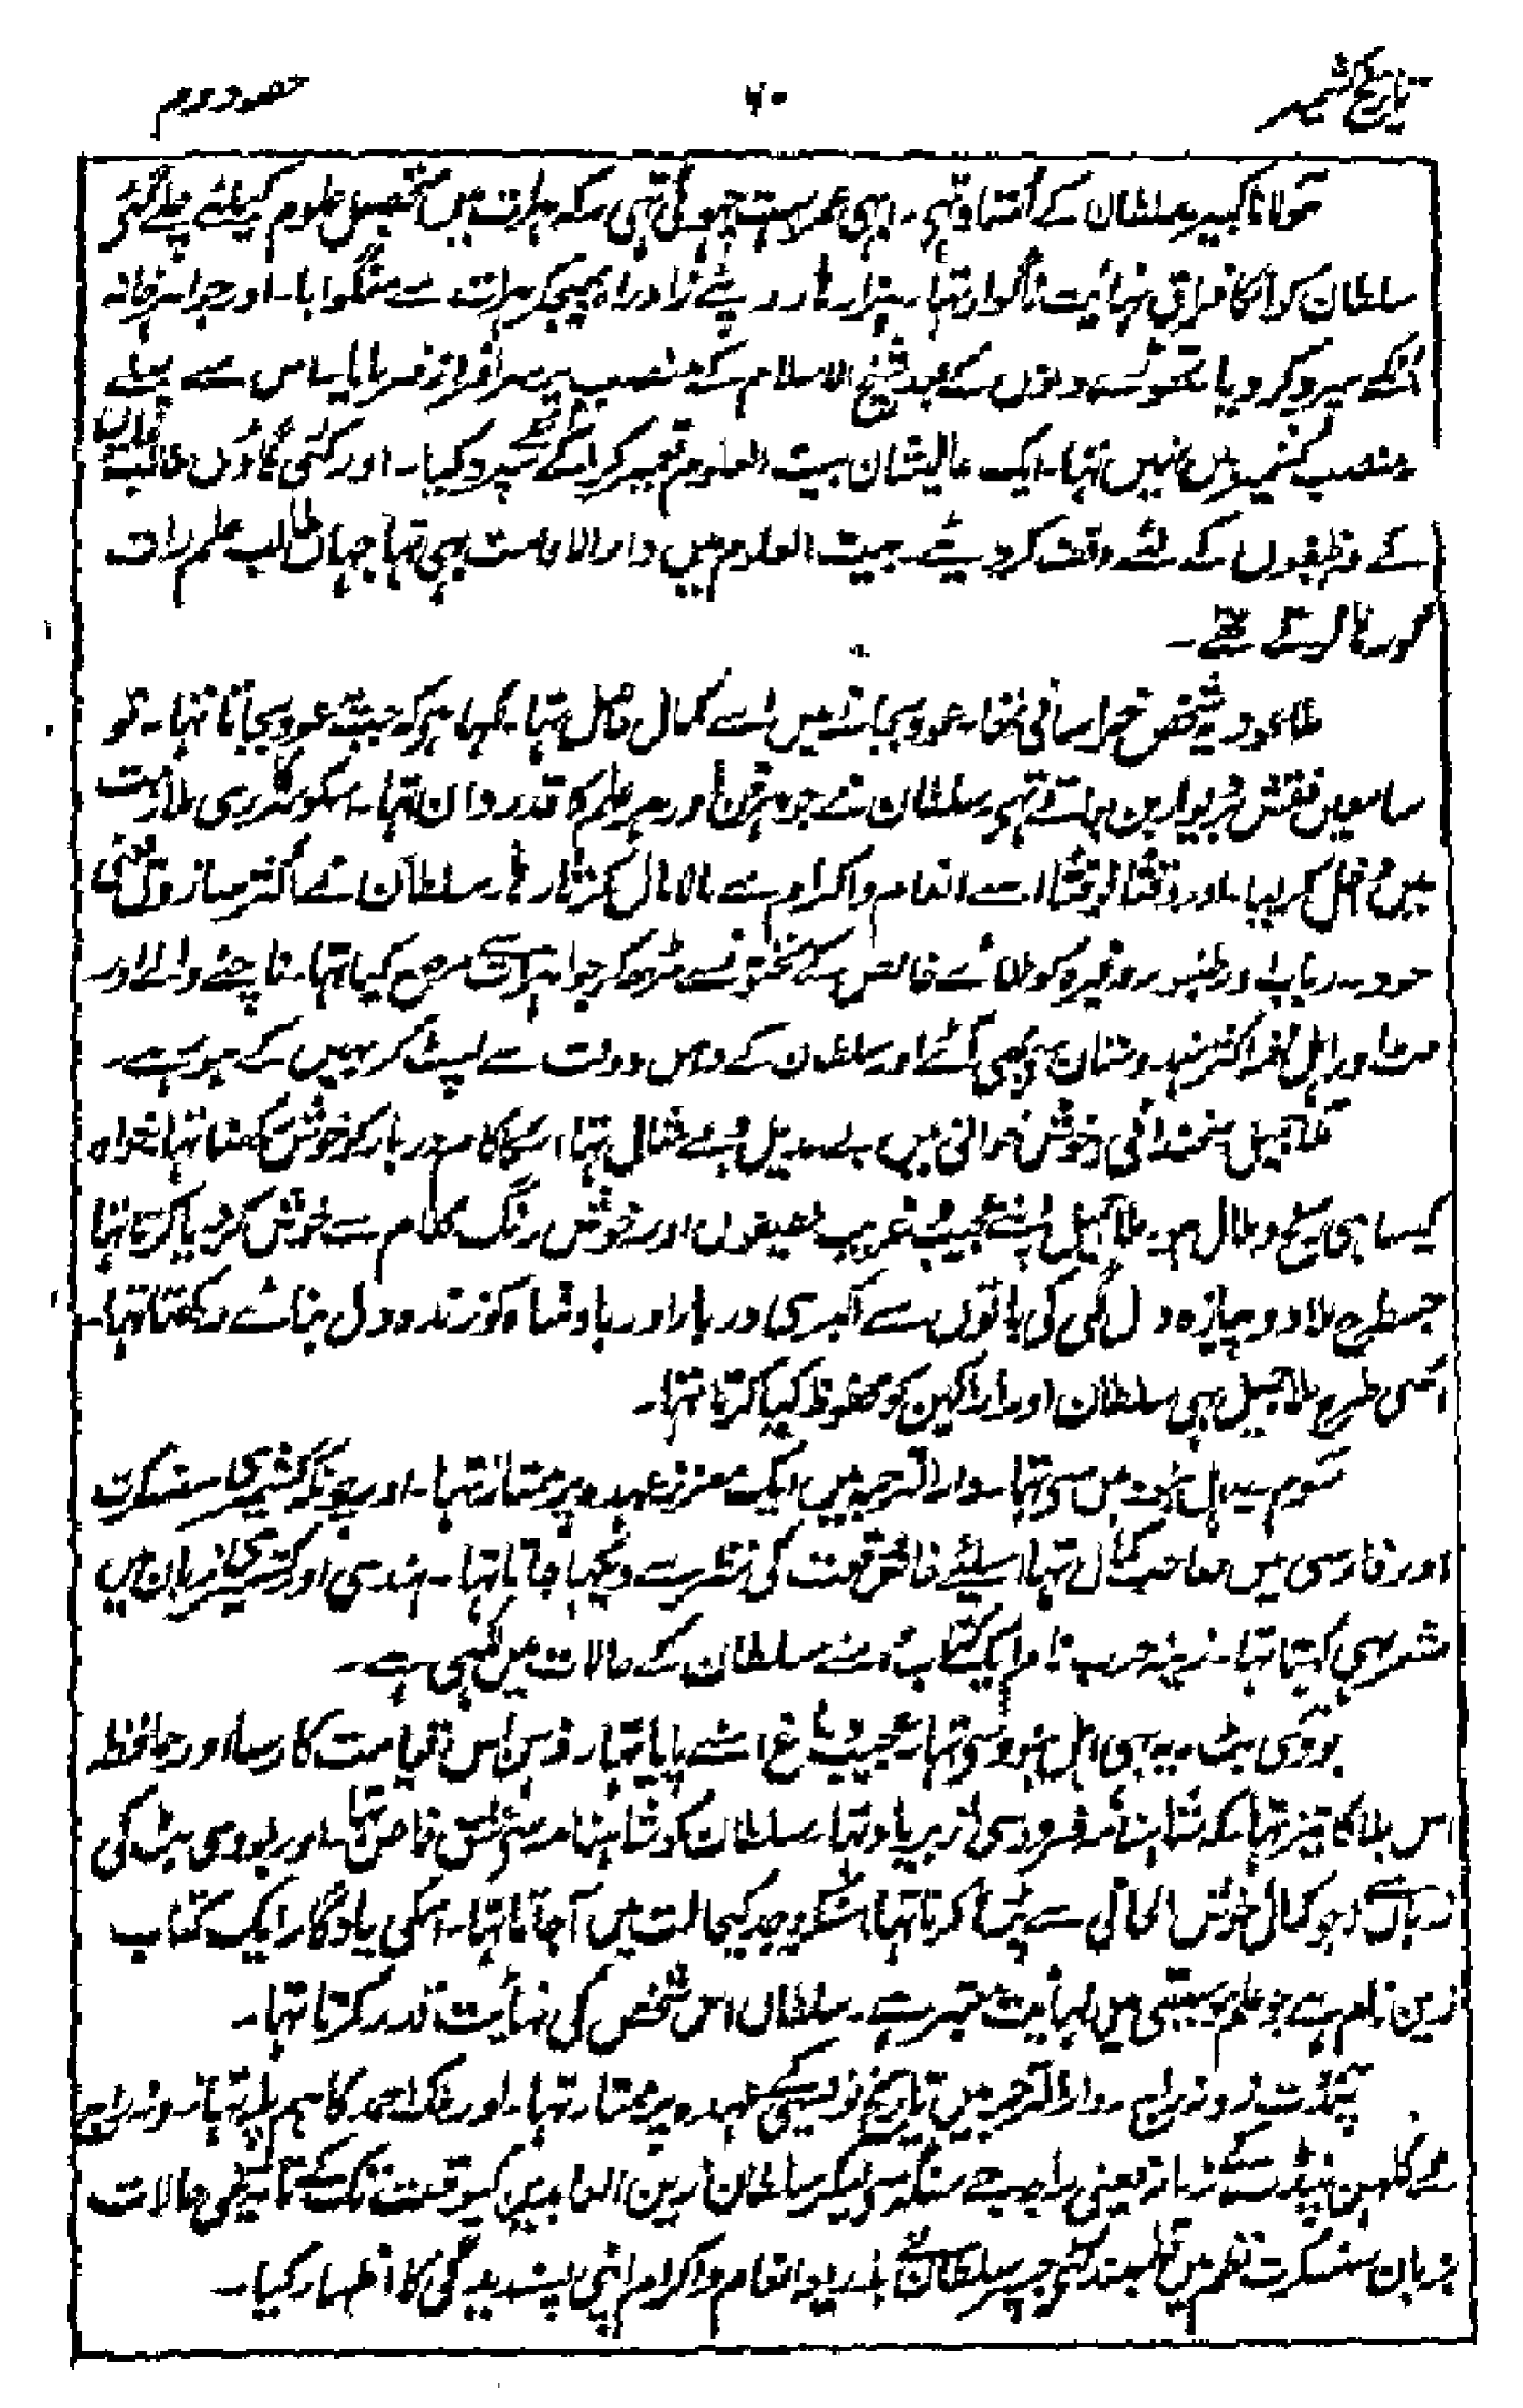 تاریخ کشمیر ۶۰ حصہ دوم
مولانا کبیر سلطان کے اُستاد تہے۔ ابہی عمر بہت چہوٹی تہی کہ ہرات میں تحصیل علوم کیلئے چلے گئے
سلطان کو انکا فراق نہائیت ناگوار تہا۔ ہزارہا روپئے زادراہ بھیجکر ہرات سے منگوایا۔ اور جواہر خانہ
انکے سپرد کر دیا تھوڑے دنوں کے بعد شیخ الاسلام کے منصب پر سرافراز فرمایا۔ اس سے پہلے
منصب کشمیر میں نہیں تہا۔ ایک عالیشان بیت العلوم تعمیر کرا کے انکے سپرد کیا۔ اور کئی گاؤں طالب علموں
کے وظیفوں کے لئے وقف کر دیئے۔ بیت العلوم میں دارالاقامت بہی تہا جہاں طالب علم رات
کو رہا کرتے تھے۔
ملا عودی یہ شخص خراسانی تھا۔ عود بجانے میں اسے کمال حاصل تہا۔ کہا ہے کہ جب یہ عود بجاتا تہا۔ تو
سامعین نقش بدیوار بن جاتے تہے سلطان نے جو ہر فن اور ہر علم کا قدردان تہا۔ اسکو شاہی ملازمت
میں داخل کر لیا۔ اور وقتاً فوقتاً اسے انعام و اکرام سے مالامال کرتا رہا۔ سلطان نے اکثر سازوں یعنی
عود۔ رباب اور طنبور وغیرہ کو طلائے خالص کے تختوں سے مڑھ کر جواہرات سے مرصع کیا تہا۔ ناچنے والے اور
نٹ اور اہل نغمہ اکثر ہندوستان سے بھی آئے اور سلطان کے دامن دولت سے لپٹ کر یہیں کے ہو رہے۔
ملا جمیل سخندانی و خوش خوانی میں بے عدیل و بے مثال تہا اسکا کام دربار کو خوش رکھنا تہا خواہ
کیسا ہی رنج و ملال ہو۔ ملا جمیل اپنے عجیب و غریب لطیفوں اور خوش رنگ کلام سے خوش کر دیا کرتا تہا
جسطرح ملا دوپیازہ دل لگی کی باتوں سے اکبری دربار اور بادشاہ کو زندہ دل بنائے رکھتا تہا۔
اسی طرح ملا جمیل بہی سلطان اور اراکین کو محظوظ کیا کرتا تہا۔
سوم۔ یہ اہل ہنود میں سے تہا۔ دارالترجمہ میں ایک معزز عہدہ پر ممتاز تہا۔ اور چونکہ کشمیری سنسکرت
اور فارسی میں صاحب کمال تہا اسلئے خاص وقعت کی نظر سے دیکہا جاتا تہا۔ ہندی اور کشمیری زبان میں
شعر بہی کہتا تہا۔ زینہ حرب نام ایک کتاب اسنے سلطان کے حالات میں لکہی ہے۔
بودی بٹ۔ یہ بہی اہل ہنود سے تہا۔ عجیب دماغ اسنے پایا تہا۔ ذہن اس قیامت کا رسا۔ اور حافظہ
اس بلا کا تیز تہا کہ شاہنامہ فردوسی ازبر یاد تہا۔ سلطان کو شاہنامہ سے عشق خاص تہا۔ اور بودی بٹ کی
زبان سے (جو کمال خوش الحانی سے پڑھا کرتا تہا) سنکر وجد کیحالت میں آجاتا تہا۔ اسکی یادگار ایک کتاب
زین نام ہے جو علم موسیقی میں نہایت معتبر ہے۔ سلطان اس شخص کی نہائیت قدر کرتا تہا۔
پنڈت زونہ راج۔ دارالترجمہ میں تاریخ نویسی کے عہدہ پر ممتاز تہا۔ اور ملک احمد کا ہم پلہ تہا۔ زونہ راج
نے کلہن پنڈت کے زمانہ یعنی راجہ جے سنگہ سے لیکر سلطان زین العابدین کیوقت تک کے تاریخی حالات
بزبان سنسکرت نظم میں قلمبند کئے جسپر سلطان نے بذریعہ انعام و اکرام اپنی پسندیدگی کا اظہار کیا۔